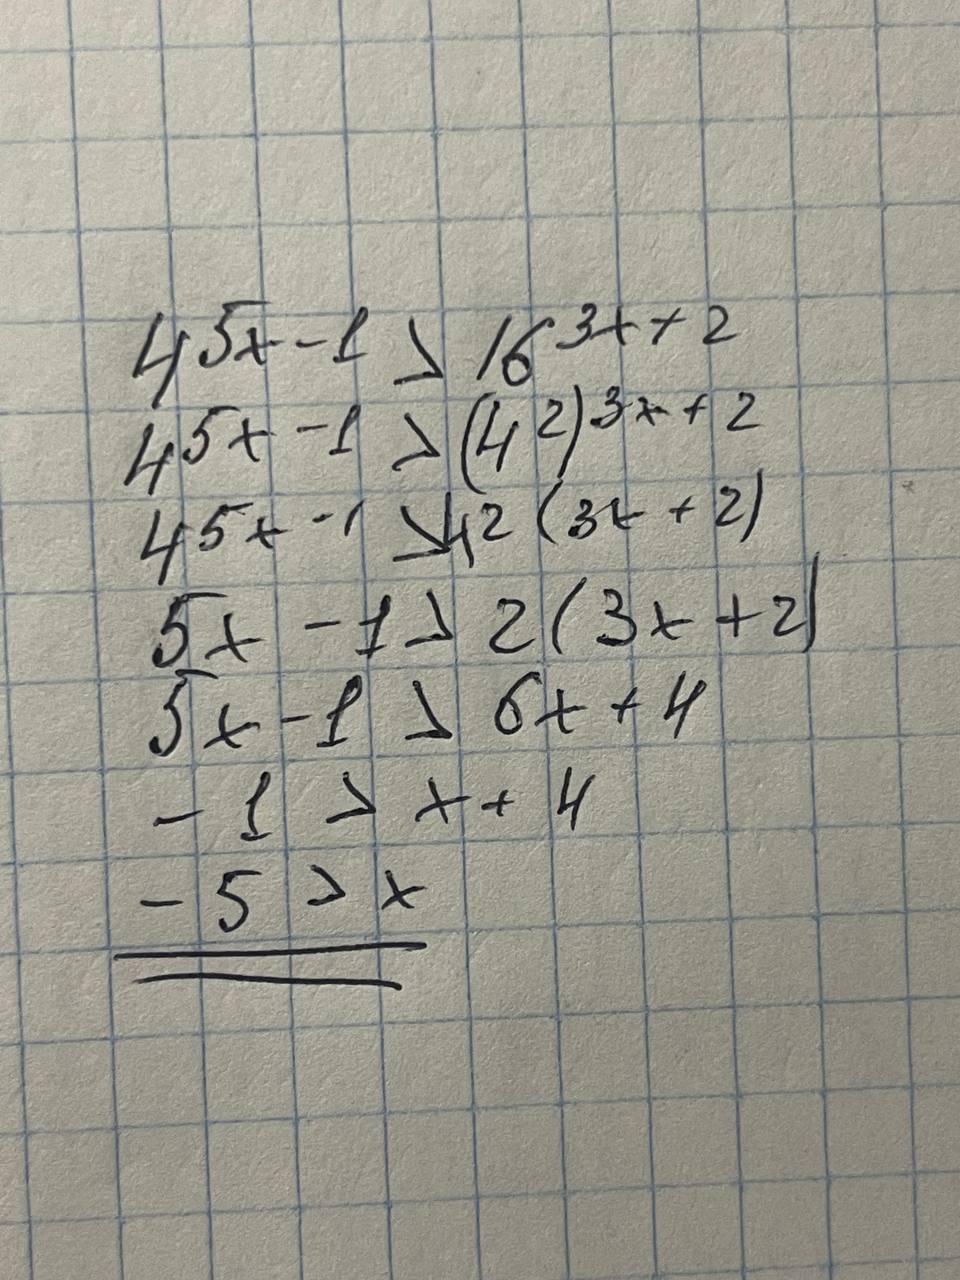 4^{5x-1} > 16^{3x+2}
4^{5x-1} > (4^2)^{3x+2}
4^{5x-1} > 4^{2(3x+2)}
5x - 1 > 2(3x+2)
5x - 1 > 6x + 4
-1 > x + 4
-5 > x